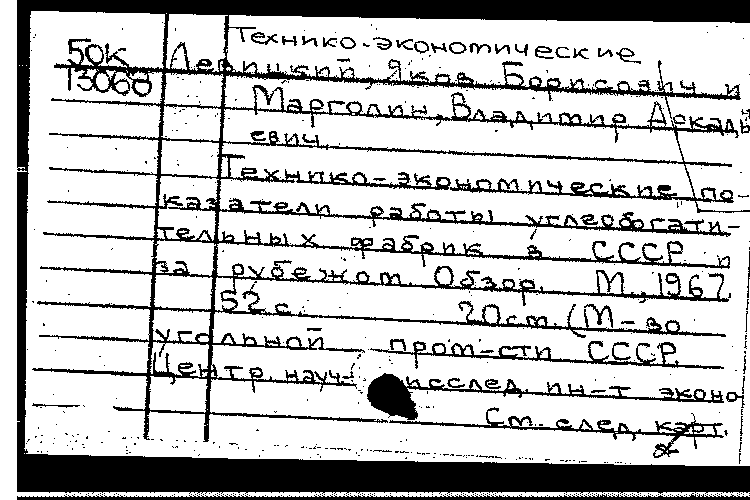 Технико-экономические
50К Левицкий, Яков Борисович и
Т3060 Марголин, Владимир Аркадь
евич.
Технико-экономические по-
казатели работы углеобогати-
тельных фабрик в СССР и
за рубежом. Обзор. М., 1967.
52 с. 20см. (М-во
угольной пром-сти СССР.
Центр. науч-исслед. ин-т эконо-
См. след. карт.